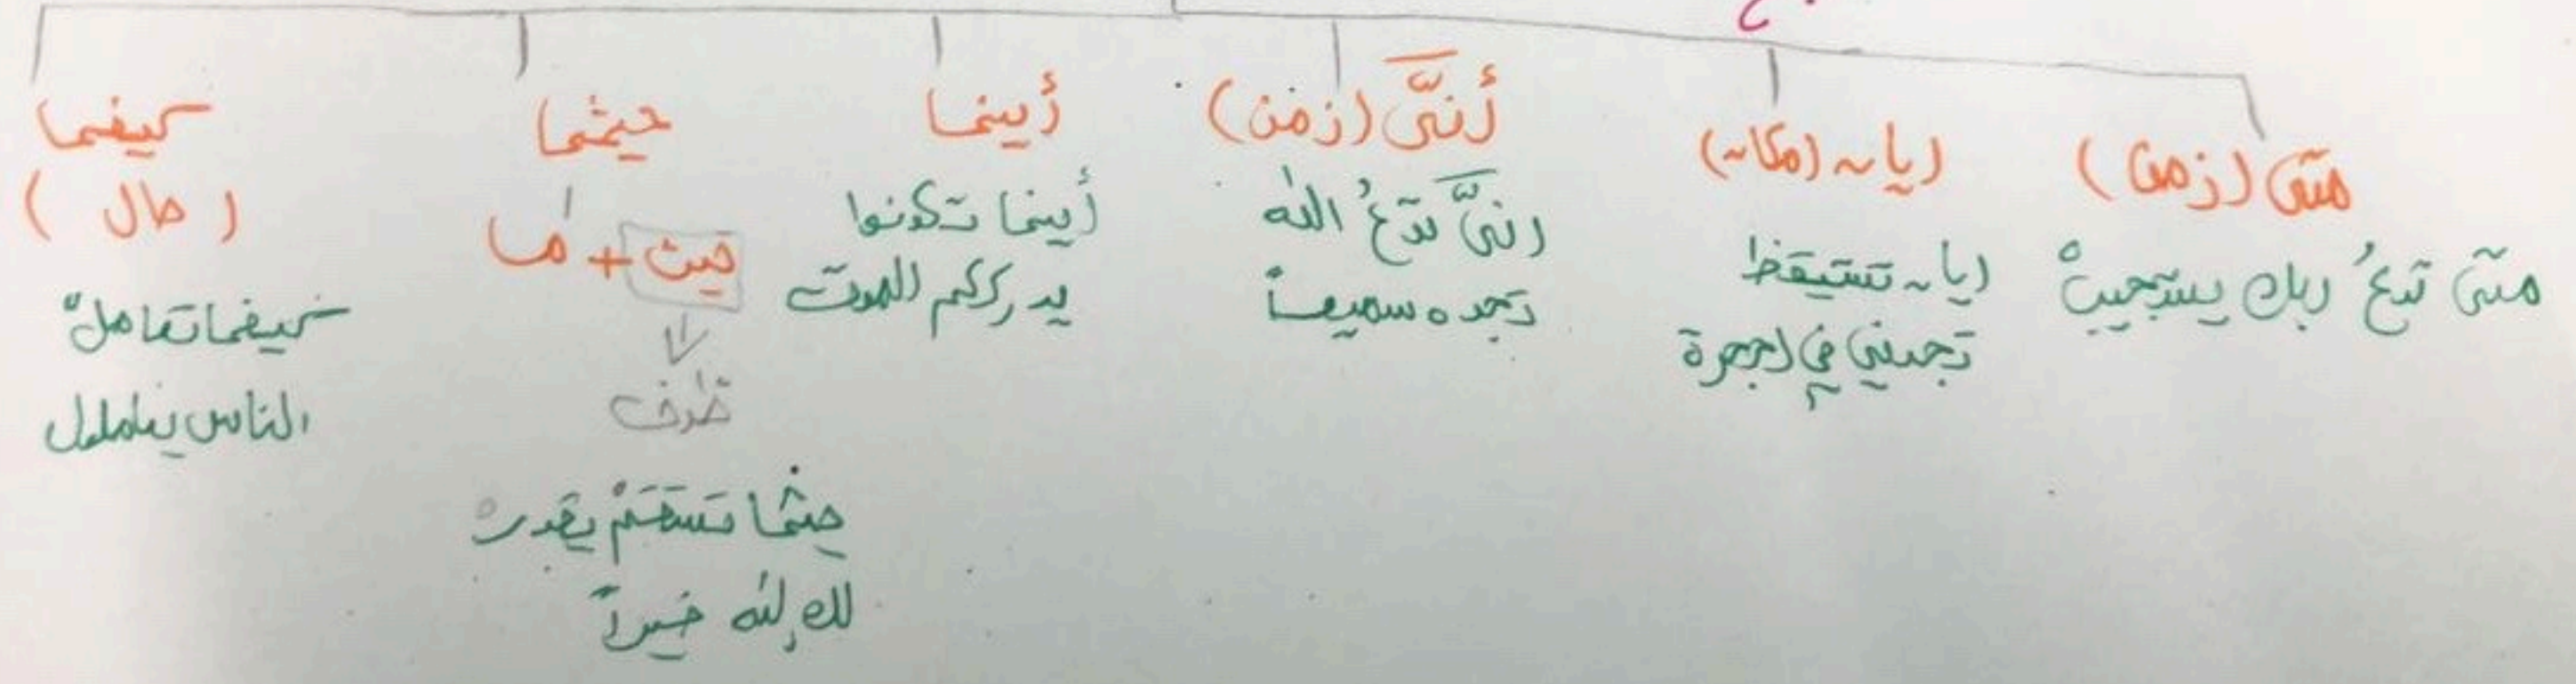 متى (زمن)
متى تدعُ ربك يستجيبْ
ايان (مكان)
ايان تستيقظ
تجدني في الحجرة
أنَّى (زمن)
انىَّ تدعُ الله
تجده سميعاً
أينما
أينما تكونوا
يدرككم الموت
حيثما
حيث + ما
ظرف
حيثما تستقمْ يقدرْ
لك الله خيراً
كيفما
(حال)
كيفما تعاملْ
الناس يعاملوك